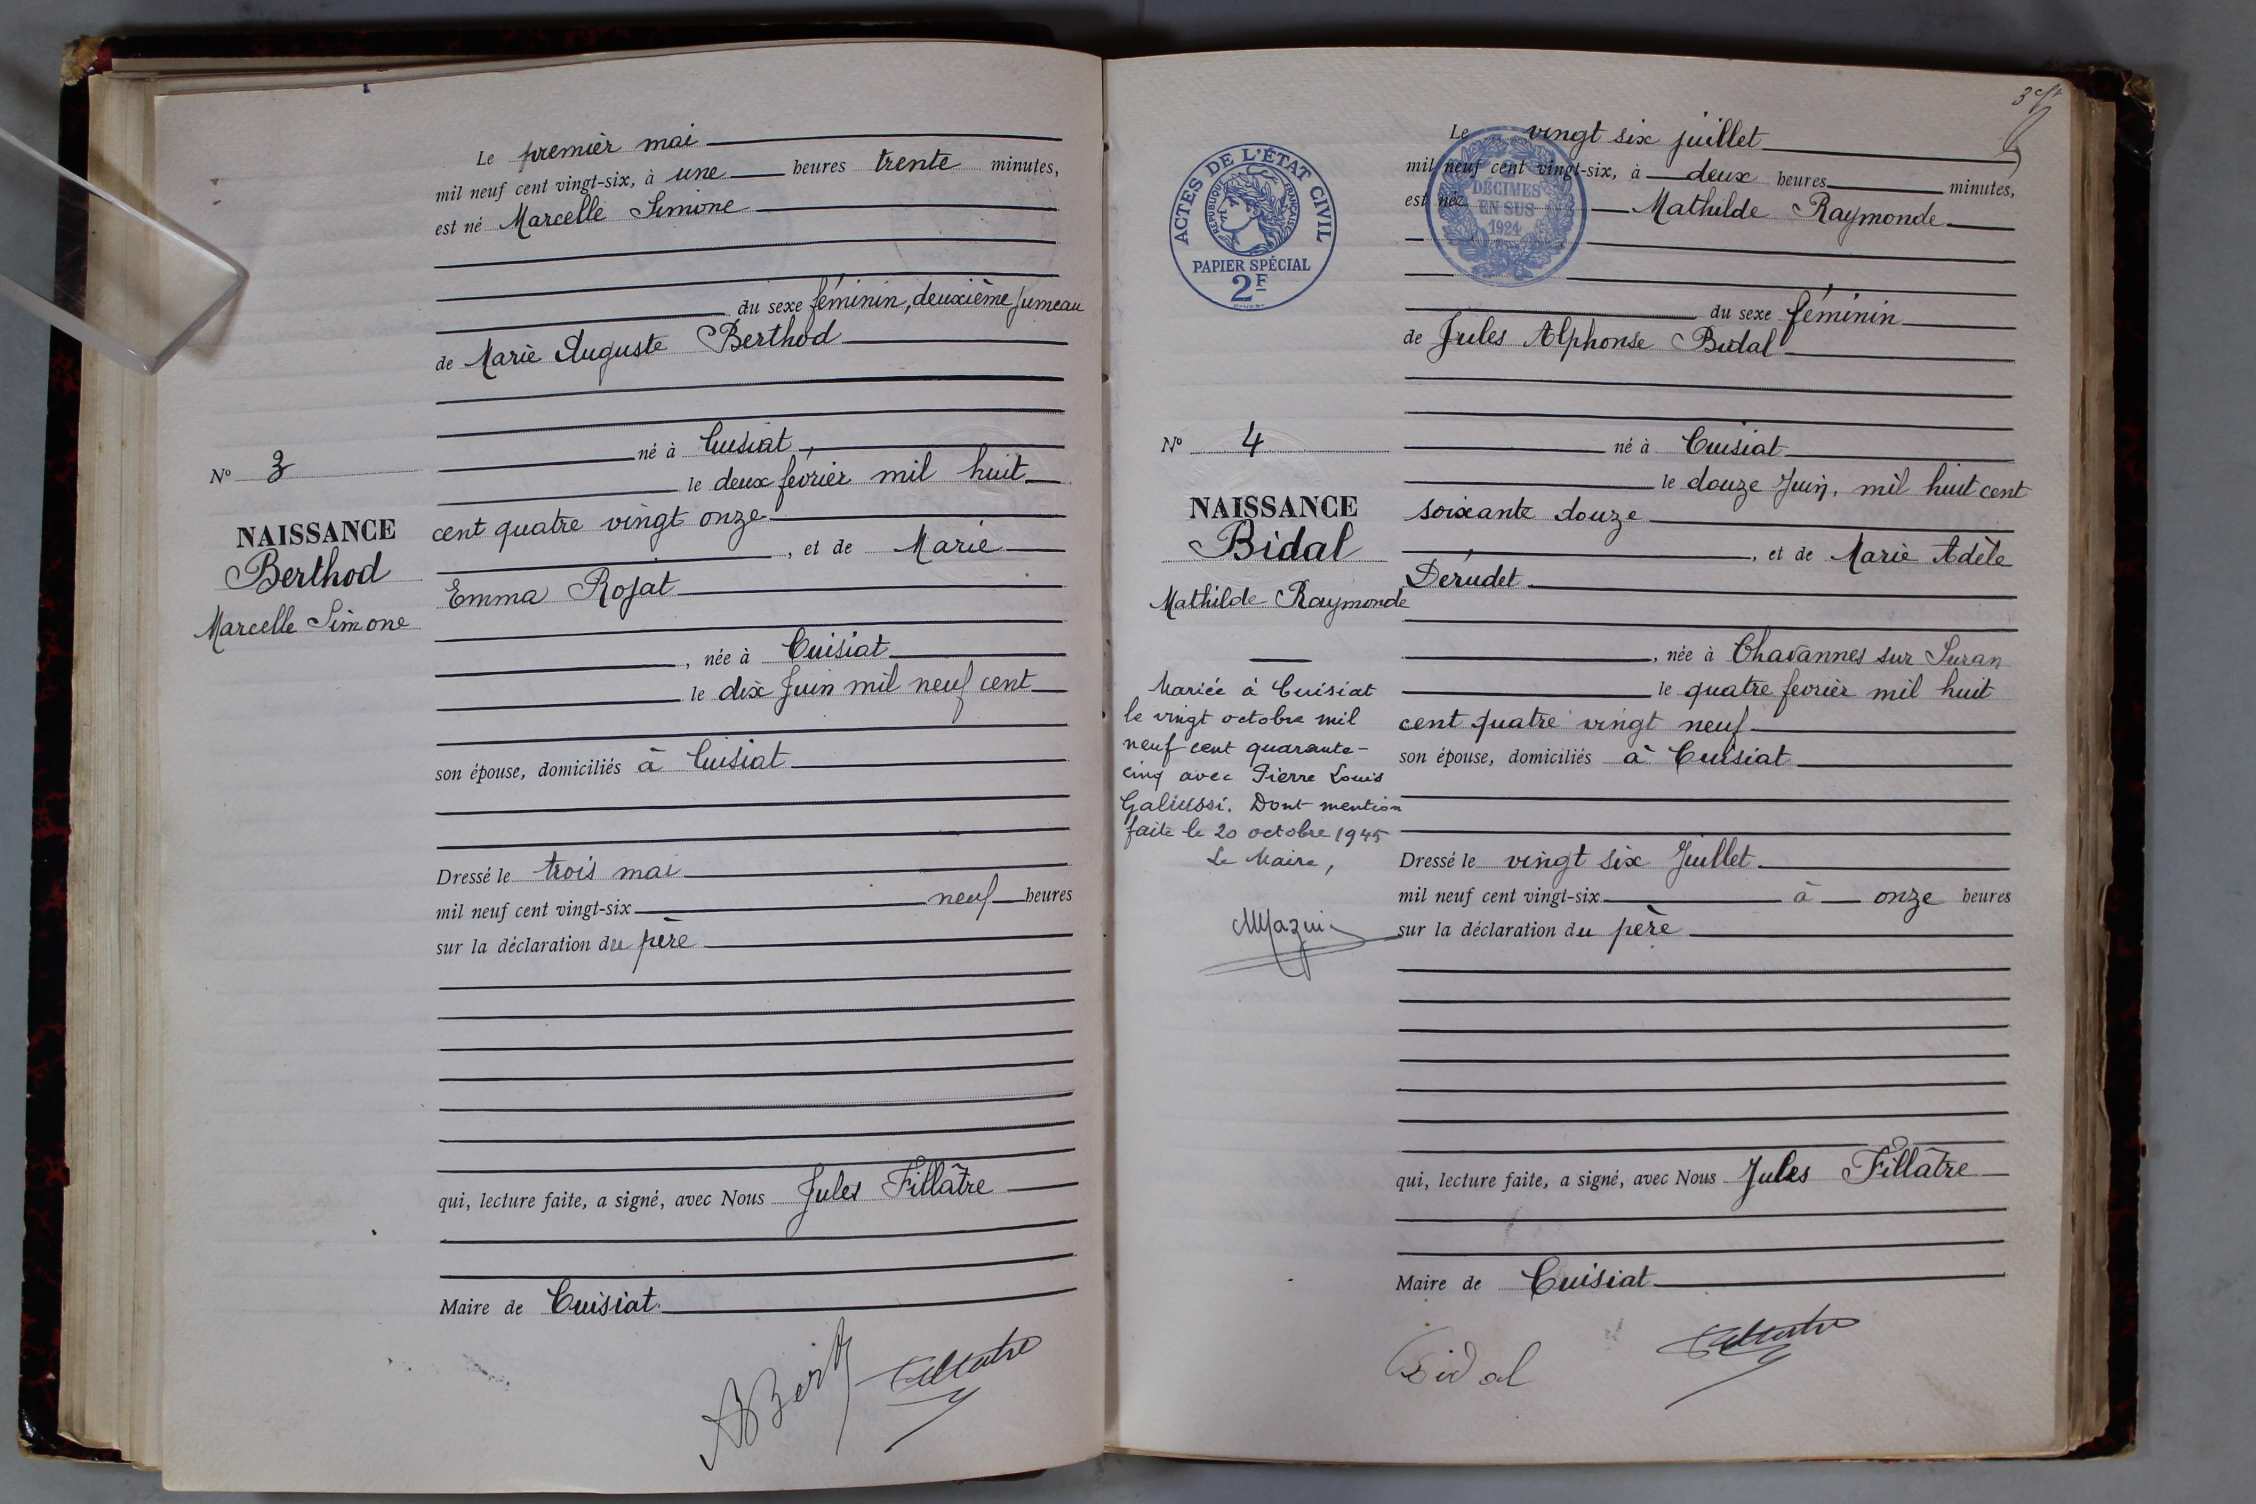 Le premier mai
mil neuf cent vingt-six, à une heures trente minutes,
est né Marcelle Simone
du sexe féminin, deuxième jumeau
de Marie Auguste Berthod
né à Cuisiat,
le deux février mil huit
cent quatre vingt onze
, et de Marie
Emma Rojat
, née à Cuisiat
le dix Juin mil neuf cent
son épouse, domiciliés à Cuisiat
Dressé le trois mai
mil neuf cent vingt-six neuf heures
sur la déclaration du père
qui, lecture faite, a signé, avec Nous Jules Fillâtre
Maire de Cuisiat
Nº 3
NAISSANCE
Berthod
Marcelle Simone
Le vingt six juillet
mil neuf cent vingt-six, à deux heures minutes,
est née Mathilde Raymonde
du sexe féminin
de Jules Alphonse Bidal
né à Cuisiat
le douze Juin, mil huit cent
soixante douze
, et de Marie Adèle
Dérudet
, née à Chavannes sur Suran
le quatre fevrier mil huit
cent quatre vingt neuf
son épouse, domiciliés à Cuisiat
Dressé le vingt six Juillet
mil neuf cent vingt-six à onze heures
sur la déclaration du père
qui, lecture faite, a signé, avec Nous Jules Fillâtre
Maire de Cuisiat
Bidal
Fillatre
ACTES DE L'ÉTAT CIVIL
RÉPUBLIQUE FRANÇAISE
PAPIER SPÉCIAL
2F
DÉCIMES
EN SUS
1924
Nº 4
NAISSANCE
Bidal
Mathilde Raymonde
Mariée à Cuisiat
le vingt octobre mil
neuf cent quarante-
cinq avec Pierre Louis
Galiussi. Dont mention
faite le 20 octobre 1945
Le Maire,